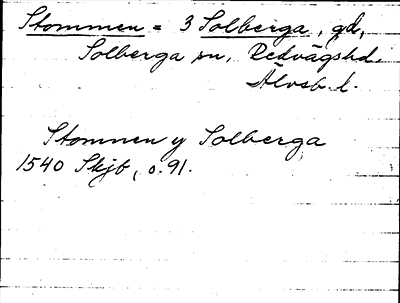 Stommen = 3 Solberga, gd,
Solberga sn, Redvägshd.
Älvsb. l.
Stomnen y Solberga
1540 Skjb, o. 91.